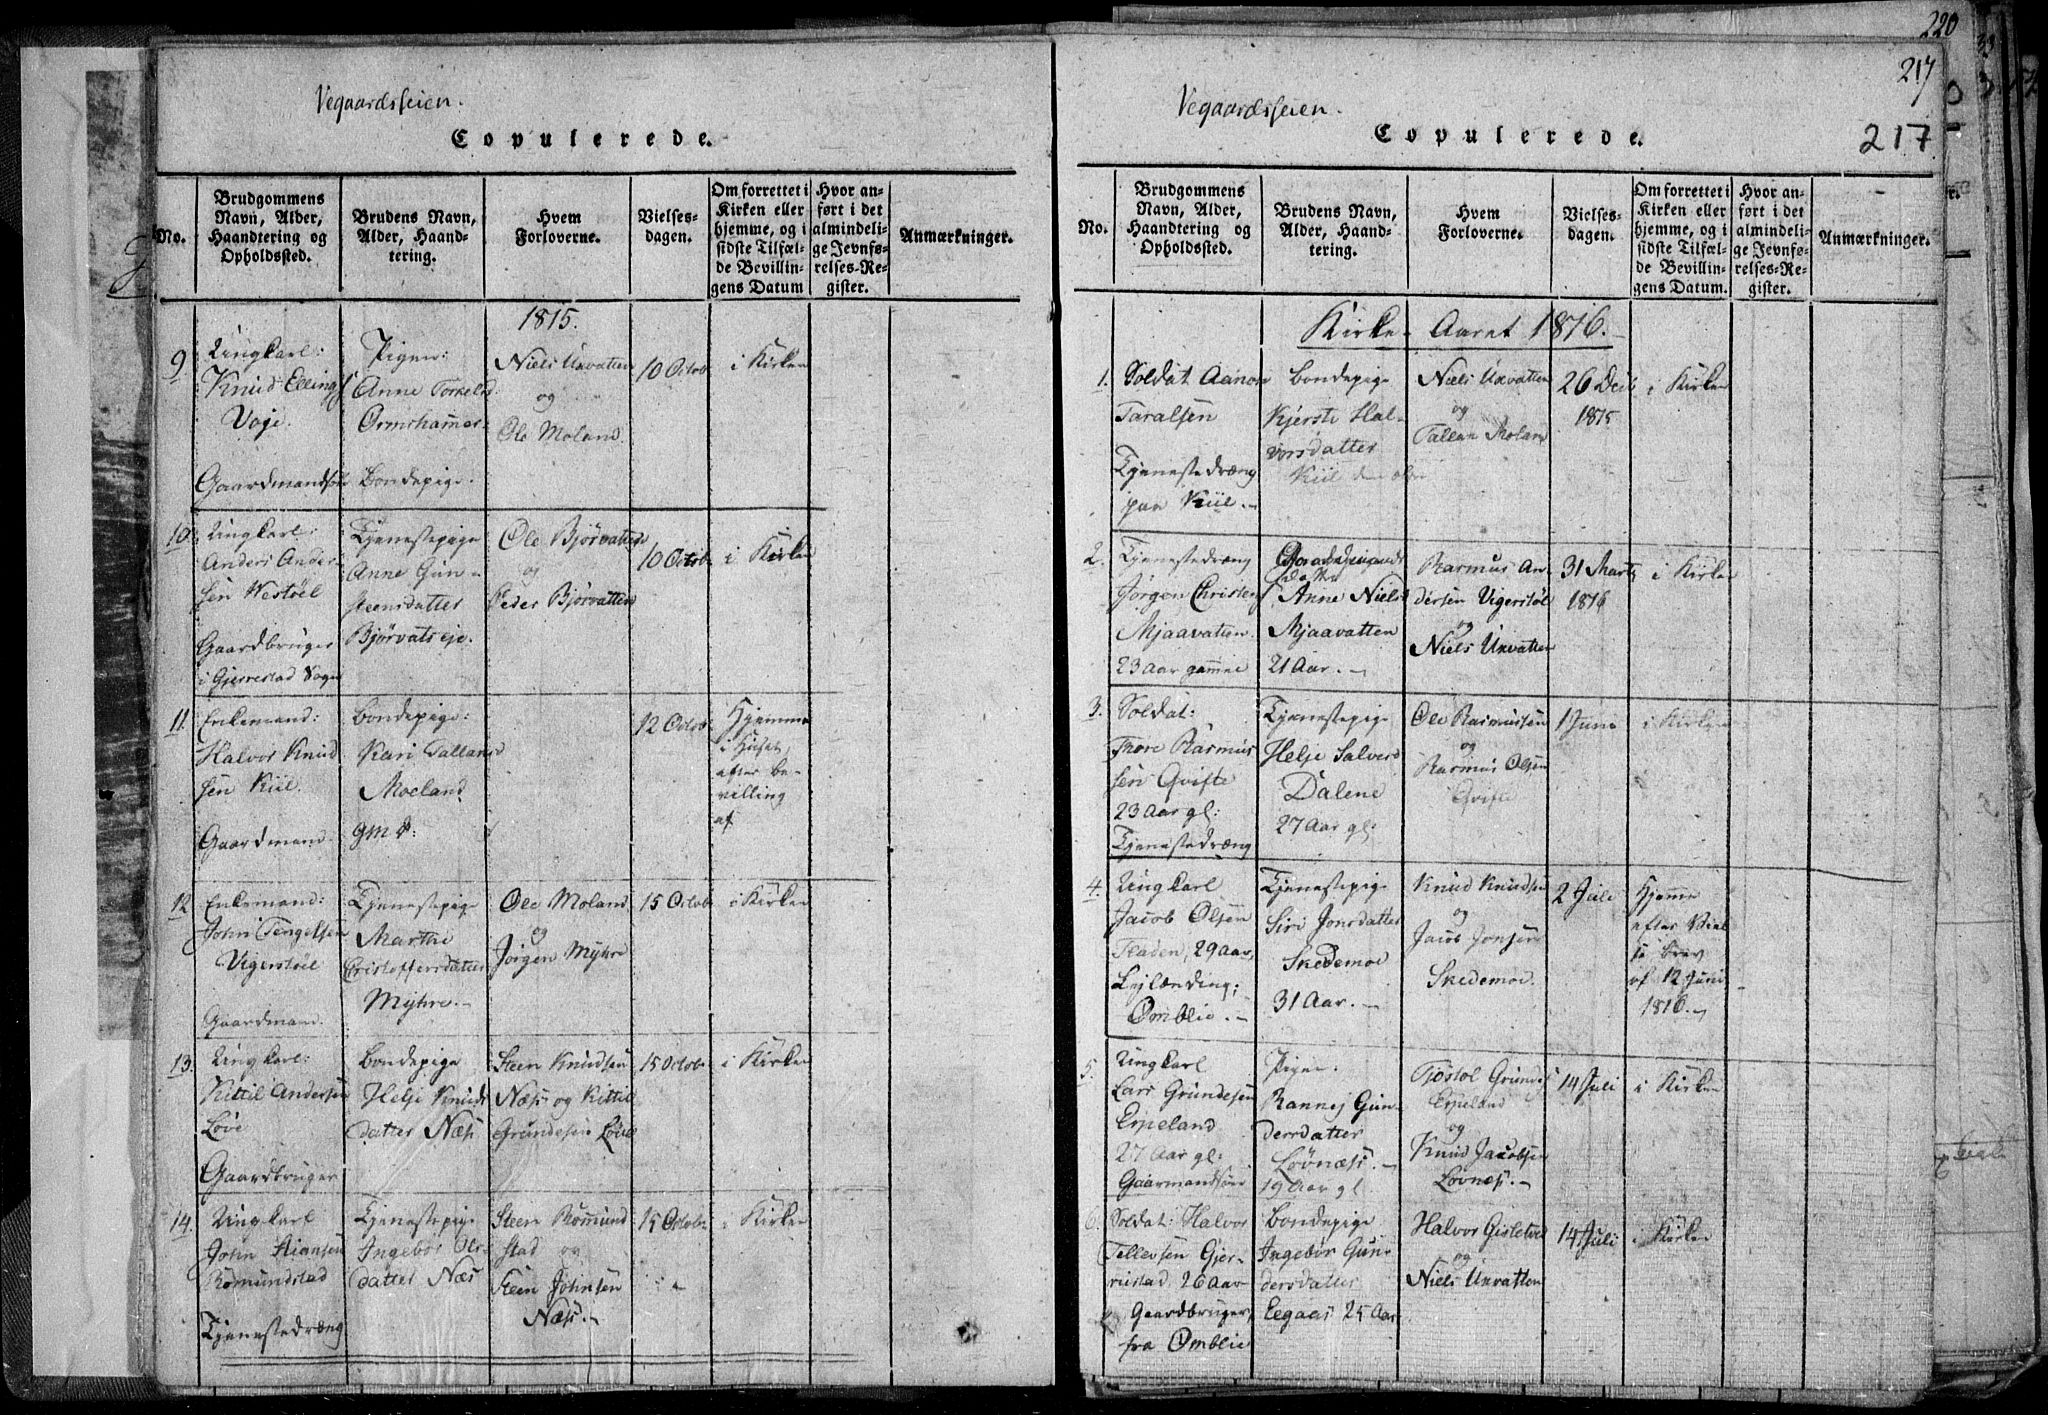 220
217
217
Vegaardsseien.
Copulerede.
No.
Brudgommens Navn, Alder, Haandtering og Opholdssted.
Brudens Navn, Alder, Haandtering.
Hvem Forloverne.
Vielsesdagen.
Om forrettet i Kirken eller hjemme, og i sidste Tilfælde Bevillingens Datum
Hvor anført i det almindelige Jevnførelses-Register.
Anmærkninger.
1815.
9
Ungkarl:
Knud Ellings
Voje.
Gaardmandsøn
Pigen:
Anne Torkelsd
Ormshamer
Bondepige.
Niels Uxvatten
og
Ole Moland
10 Octob
i Kirken
10
Ungkarl:
Anders Ander-
sen Westøel
Gaardbruger
i Gjerrestad Sogn
Tjenestepige
Anne Gun-
steensdatter
Bjørvatseje.
Ole Bjørvatten
og
Peder Bjørvatten
10 Octob.
i Kirken
11.
Enkemand:
Halvor Knud
sen Kiil.
Gaardmand
Bondepige:
Kari Tallaksd
Moeland
gm d:
12 Octob.
Hjemme
i Huset,
efter be-
villing
af
12
Enkemand:
John Tengelsen
Vigerstøel
Gaardmand.
Tjenestepige
Marthe
Cristoffersdatter
Myhre.-
Ole Moland
og
Jørgen Myhre
15 Octob
i Kirken
13.
Ungkarl:
Kittil Andersen
Løve
Gaardbruger
Bondepige
Helje Knuds
datter Næss
Steen Knudsen
Næss og Kittil
Grundesen Løve
15 Octob.
i Kirken
14.
Ungkarl
John
Romundstad
Tjenestedræng
Tjenestepige
Ingebor Ols-
datter Næs
Steen Romund
stad og
Steen Johnsen
Næss.-
15 Octob.
i Kirken
Vegaardsseien.
Copulerede.
No.
Brudgommens Navn, Alder, Haandtering og Opholdssted.
Brudens Navn, Alder, Haandtering.
Hvem Forloverne.
Vielsesdagen.
Om forrettet i Kirken eller hjemme, og i sidste Tilfælde Bevillingens Datum.
Hvor anført i det almindelige Jevnførelses-Register.
Anmærkninger.
Kirke-Aaret 1816.
1.
Soldat Aanon
Taralsen
Tjenestedræng
paa Kiil.-
Bondepige
Kjerste Hal-
vorsdatter
Kiil
Niels Uxvatten
og
Tallak Moland
26 Decb
1815
i Kirken
2.
Tjenestedræng
Jørgen Christens
Mjaavatten.
23 Aar gamle
Anne Nielsd
Mjaavatten
21 Aar.-
Rasmus An-
dersen Vigerstøl
og
Niels Uxvatten
31 Marts
1816
i Kirken
3.
Soldat:
Thore Rasmus
sen Qvifte
23 Aar gl:
Tjenestedræng
Tjenestepige
Helje Salvesd
Dalene
27 Aar gl:
Ole Rasmussen
og
Rasmus Olsen
Qvifte
1 Juni
i Kirken
4.
Ungkarl
Jacob Olsen
Fladen, 29 aar,
Lejlænding;
Omblie.-
Tjenestepige
Siri Jonsdatter
Skedemoe
31 Aar.-
Knud Knudsen
og
Jacob Jonsen
Skedemoe.
2 Juli
Hjemme
efter Viel
se brev
af 12 Juni
1816.-
5.
Ungkarl
Lars Grundesen
Espeland
27 Aar gl:
Gaarmandsøn
Pigen:
Rannej Gun-
dersdatter
Løvnæss.-
19 Aar gl
Tjøstol Grundes
Espeland
og
Knud Jacobsen
Lovnæss.-
14 Juli
i Kirken
6.
Soldat: Halvor
Tellevsen Gjer-
rustad 26 aar
Gaardbruger,
fra Omblie
Bondepige
Ingebor Gun-
dersdatter
Eegaas 25 Aar
Halvor Gisletved
og
Niels Uxvatten
14 Juli
i Kirken